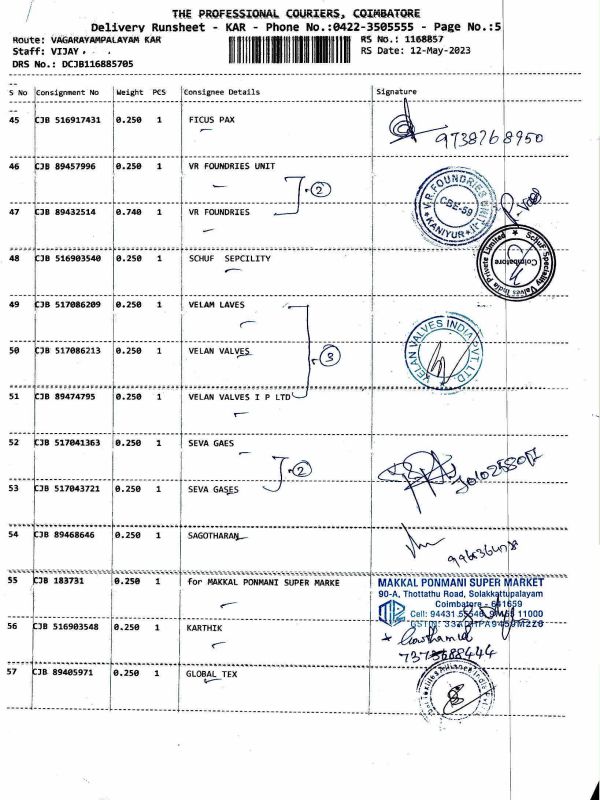 THE PROFESSIONAL COURIERS, COIMBATORE
Delivery Runsheet - KAR - Phone No.:0422-3505555 - Page No.:5
Route: VAGARAYAMPALAYAM KAR
RS No.: 1168857
Staff: VIJAY . .
RS Date: 12-May-2023
DRS No.: DCJB116885705
S No Consignment No Weight PCS Consignee Details Signature
45 CJB 516917431 0.250 1 FICUS PAX
9738768950
46 CJB 89457996 0.250 1 VR FOUNDRIES UNIT
2
V.R.FOUNDRIES UNIT
CBE-59
KANIYUR
47 CJB 89432514 0.740 1 VR FOUNDRIES
48 CJB 516903540 0.250 1 SCHUF SEPCILITY
Schuf Speciality Valves India Private Limited
Coimbatore
49 CJB 517086209 0.250 1 VELAM LAVES
3
VELAN VALVES INDIA PVT. LTD.
50 CJB 517086213 0.250 1 VELAN VALVES
51 CJB 89474795 0.250 1 VELAN VALVES I P LTD
52 CJB 517041363 0.250 1 SEVA GAES
2
53 CJB 517043721 0.250 1 SEVA GASES
54 CJB 89468646 0.250 1 SAGOTHARAN
55 CJB 183731 0.250 1 for MAKKAL PONMANI SUPER MARKE
MAKKAL PONMANI SUPER MARKET
90-A, Thottathu Road, Solakkattupalayam
Coimbatore - 641659
Cell: 94431 55546, 11000
GSTIN: 
56 CJB 516903548 0.250 1 KARTHIK
Gowthamid
7373688444
57 CJB 89405971 0.250 1 GLOBAL TEX